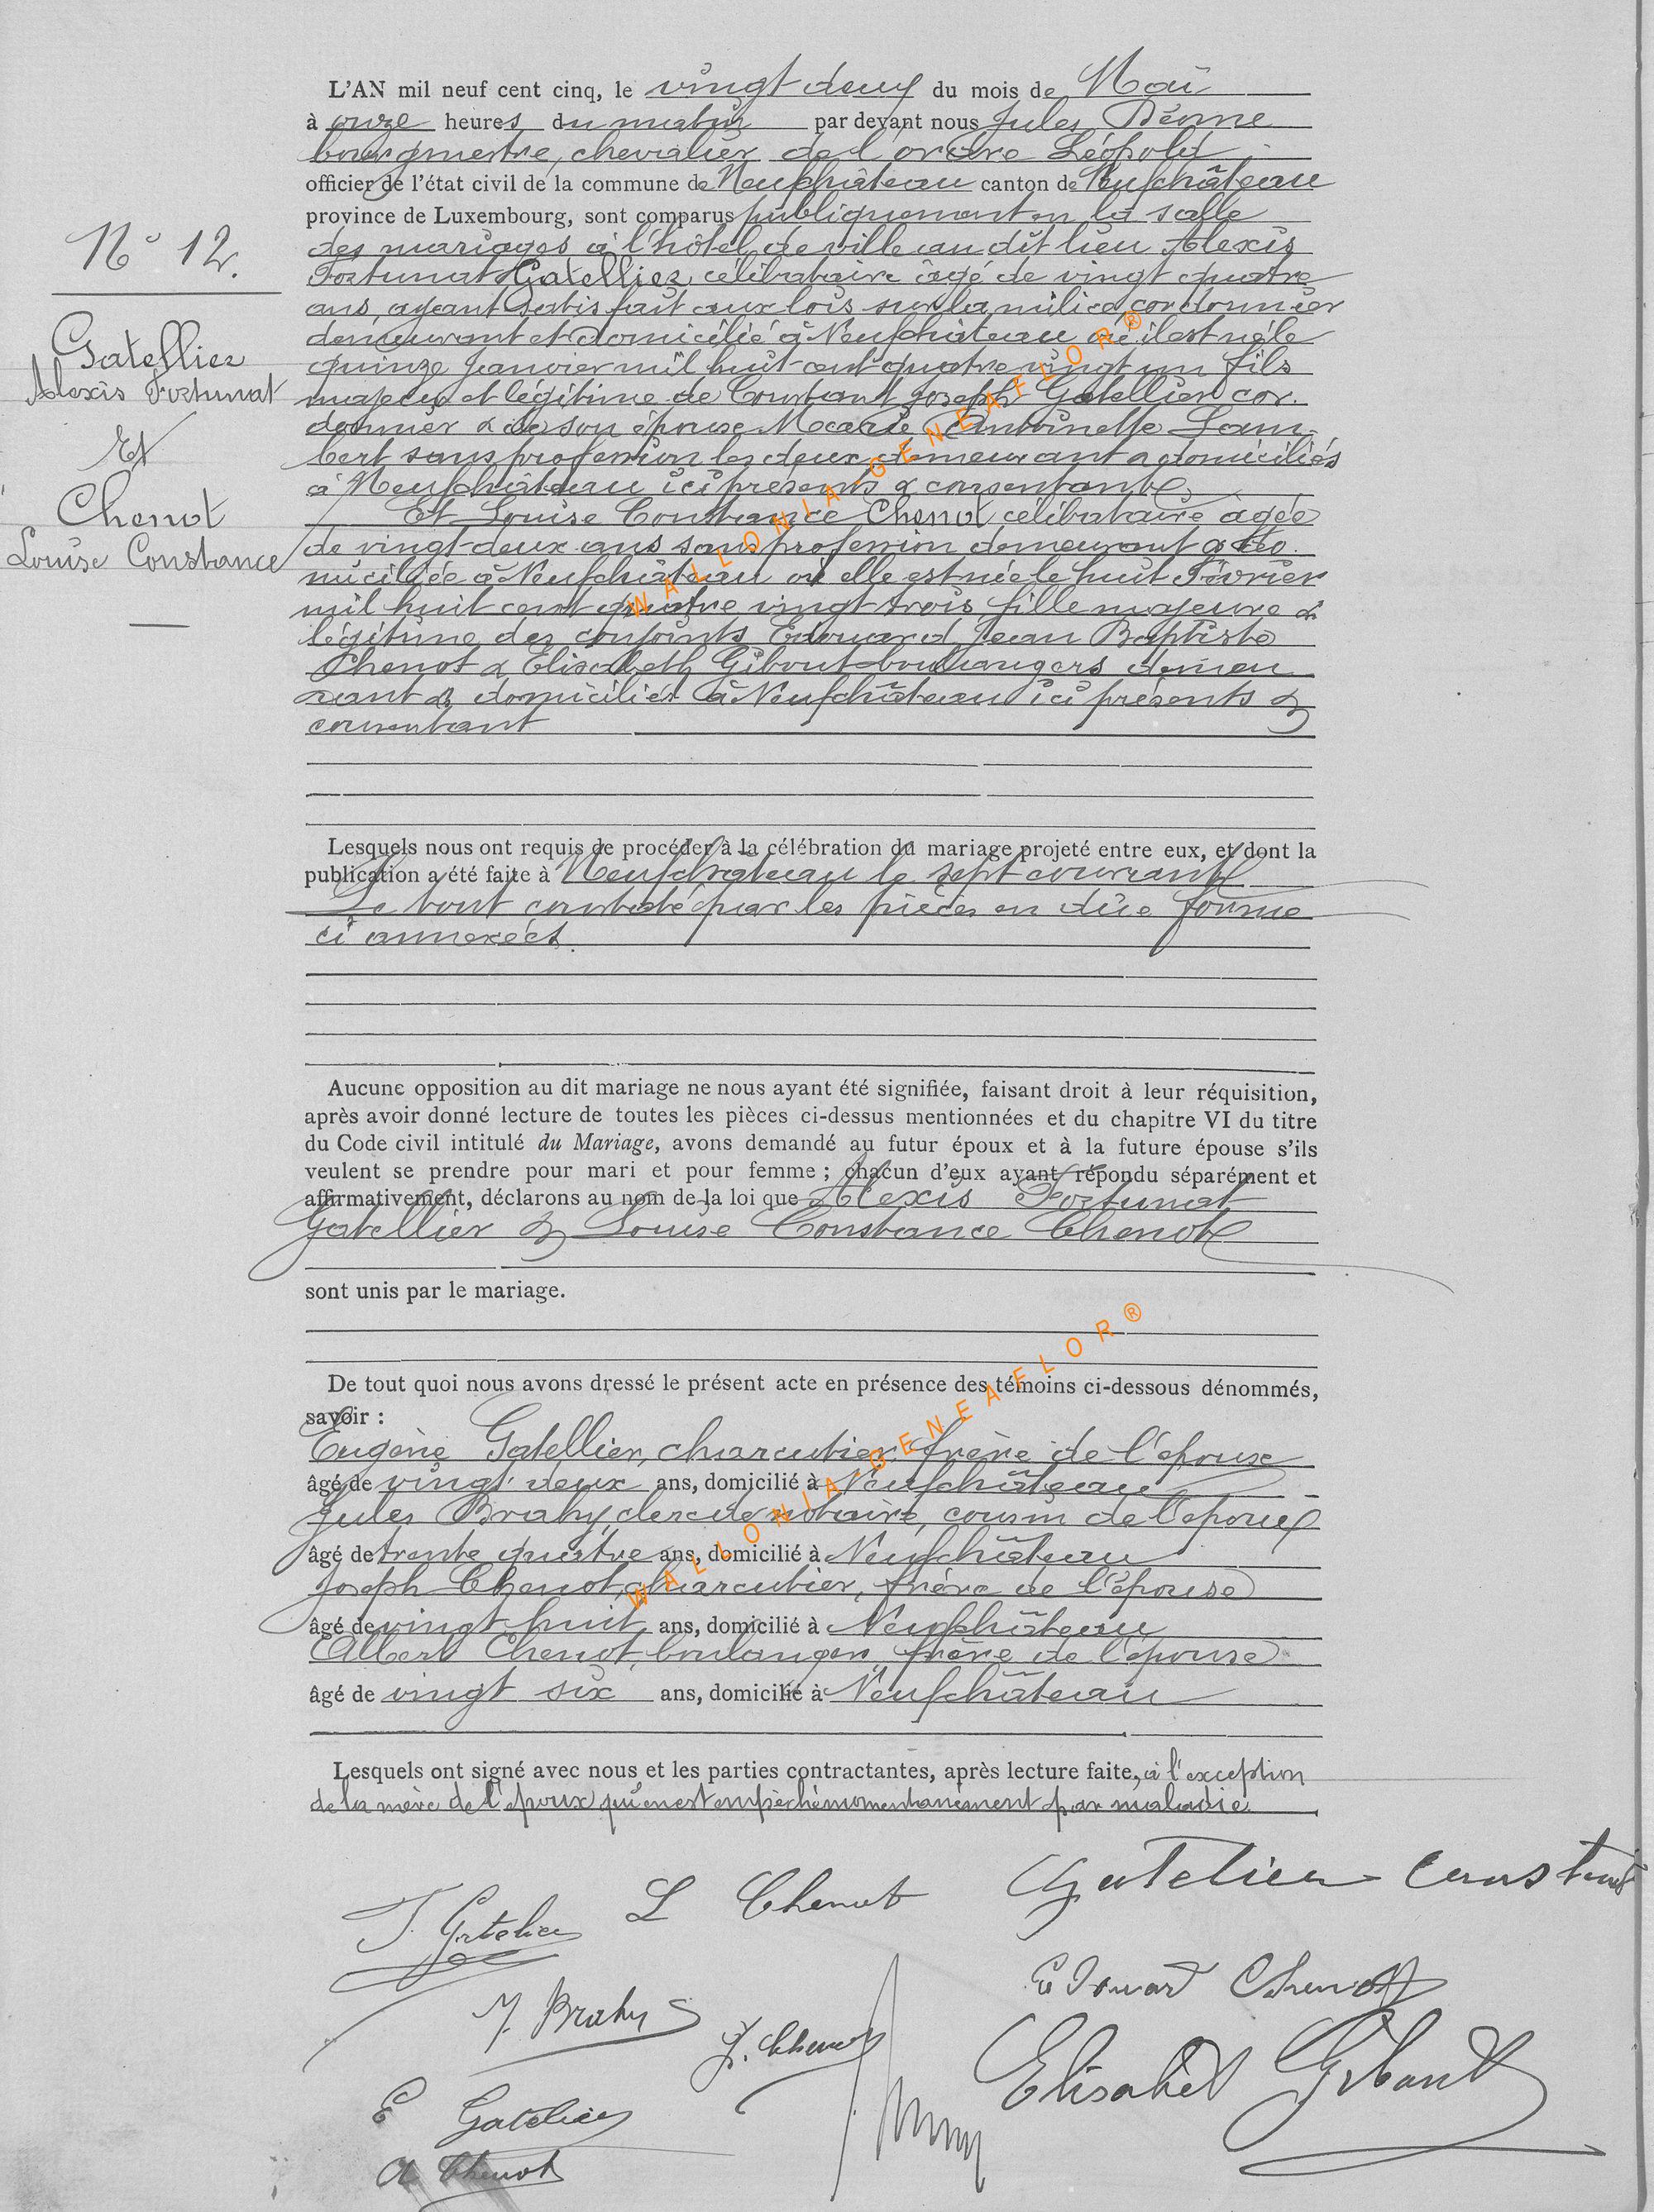 N° 12.
Gatellier
Alexis Fortunat
Et
Chenot
Louise Constance
L'AN mil neuf cent cinq, le vingt deux du mois de Mai
à onze heures du matin par devant nous Jules
bourgmestre, chevalier de l'ordre Léopold
officier de l'état civil de la commune de Neufchâteau canton de Neufchâteau
province de Luxembourg, sont comparus publiquement en la salle
des mariages à l'hôtel de ville au dit lieu Alexis
Fortunat Gatellier, célibataire âgé de vingt quatre
ans, ayant satisfait aux lois sur la milice, cordonnier
demeurant et domicilié à Neufchâteau où il est né le
quinze Janvier mil huit cent quatre vingt un fils
majeur et légitime de Constant Joseph Gatellier cor-
donnier & de son épouse Marie Antoinette Lam-
bert sans profession les deux demeurant & domiciliés
à Neufchâteau ici présents & consentants.
Et Louise Constance Chenot célibataire agée
de vingt-deux ans sans profession demeurant & do-
miciliée à Neufchâteau où elle est née le huit Février
mil huit cent quatre vingt trois fille majeure &
légitime des conjoints Edouard Jean Baptiste
Chenot & Elisabeth Gibout boulangers demeu
rant & domiciliés à Neufchâteau ici présents &
consentant
Lesquels nous ont requis de procéder à la célébration du mariage projeté entre eux, et dont la
publication a été faite à Neufchâteau le sept courant
Le tout constaté par les pièces en dûe forme
ci annexées.
Aucune opposition au dit mariage ne nous ayant été signifiée, faisant droit à leur réquisition,
après avoir donné lecture de toutes les pièces ci-dessus mentionnées et du chapitre VI du titre
du Code civil intitulé du Mariage, avons demandé au futur époux et à la future épouse s'ils
veulent se prendre pour mari et pour femme ; chacun d'eux ayant répondu séparément et
affirmativement, déclarons au nom de la loi que Alexis Fortunat
Gatellier & Louise Constance Chenot
sont unis par le mariage.
De tout quoi nous avons dressé le présent acte en présence des témoins ci-dessous dénommés,
savoir :
Eugène Gatellier, charcutier frère de l'époux
âgé de vingt deux ans, domicilié à Neufchâteau
Jules Brahy, clerc de notaire, cousin de l'époux
âgé de trente quatre ans, domicilié à Neufchâteau
Joseph Chenot, charcutier, frère de l'épouse
âgé de vingt huit ans, domicilié à Neufchâteau
Albert Chenot, boulanger, frère de l'épouse
âgé de vingt six ans, domicilié à Neufchâteau
Lesquels ont signé avec nous et les parties contractantes, après lecture faite, à l'exception
de la mère de l'époux qui en est empêchée momentanément par maladie
Gatelier Constant
L Chenot
Gatelier
Edouard Chenot
J. Brahy
J. Chenot
Elisabet Gibout
E Gatelier
A Chenot
WALLONIA-GENEAFLOR®
WALLONIA-GENEAFLOR®